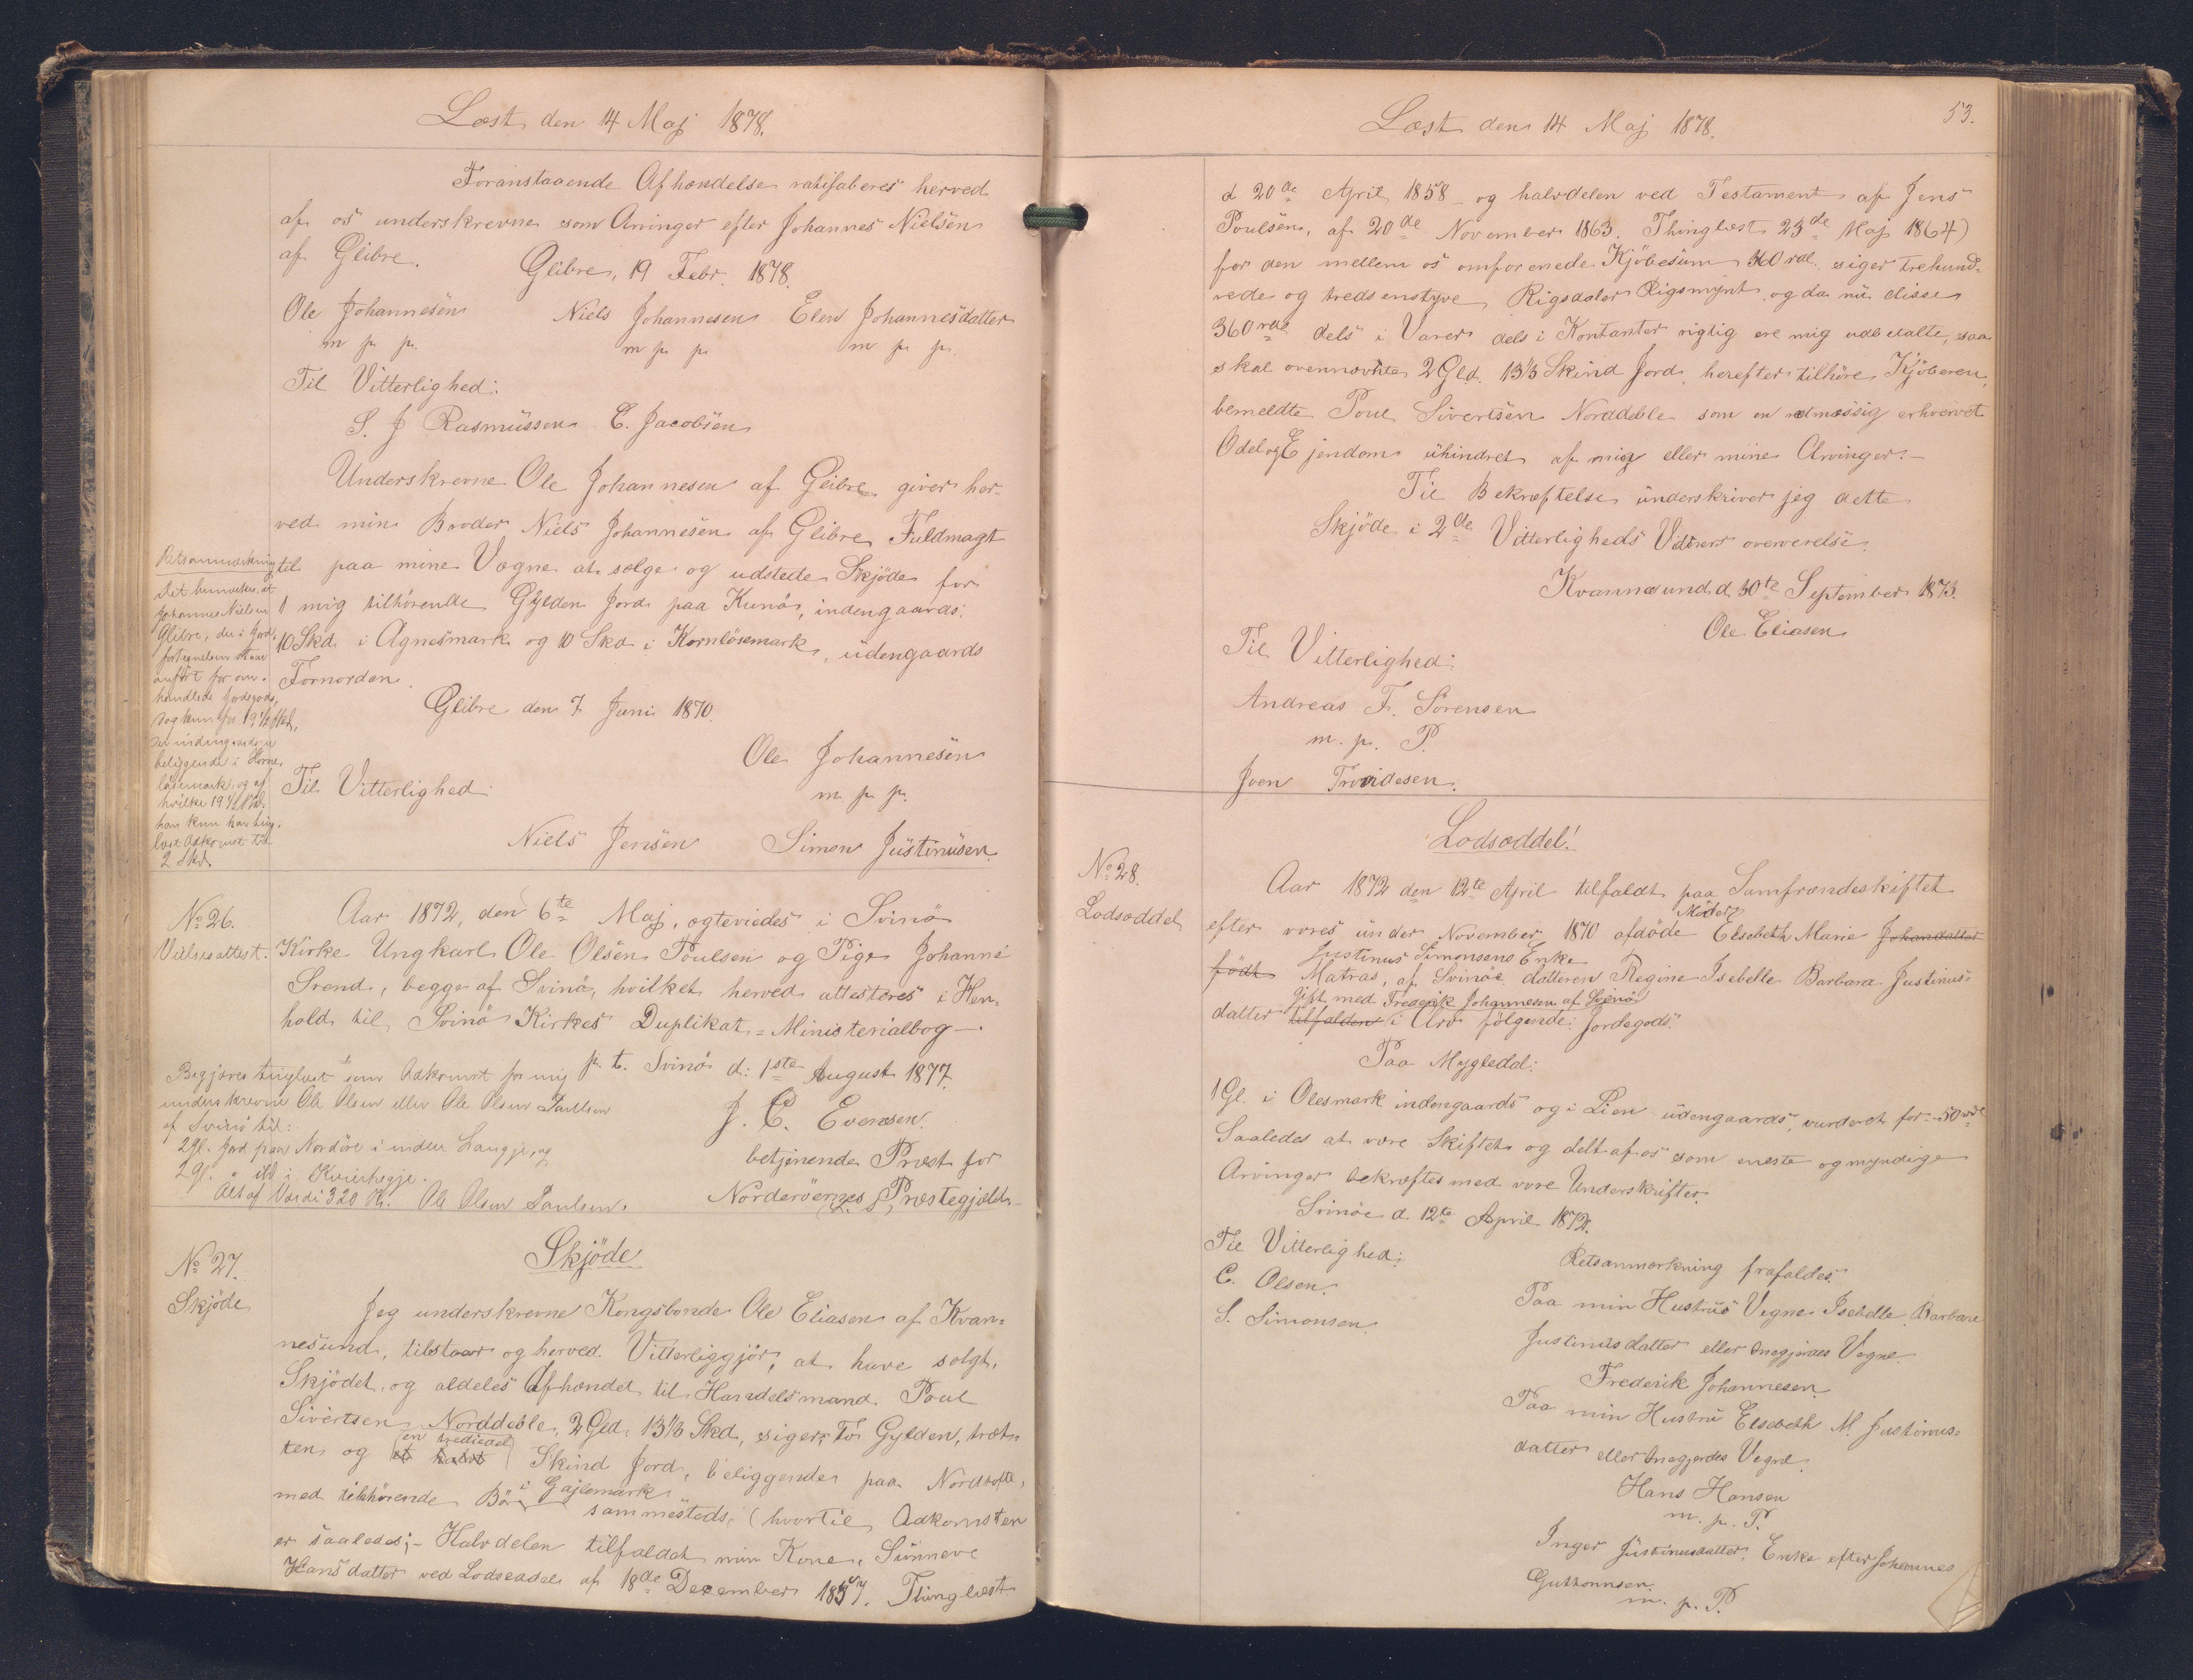 Læst den 14 Maj 1878.
Foranstaaende Afhændelse ratihaberes herved
af os underskrevne som Arvinger efter Johannes Nielsen
af Glibre.
Glibre, 19 Febr. 1878.
Ole Johannesen Niels Johannesen Elen Johannesdatter
m p p. m p p. m p p.
Til Vitterlighed:
S. J Rasmussen E. Jacobsen
Underskrevne Ole Johannesen af Glibre giver her-
ved min Broder Niels Johannesen af Glibre Fuldmagt
til paa mine Vegne at sælge og udstede Skjöde for
1 mig tilhörende Gylden Jord paa Kunö, indengaards:
10 Skd i Agnesmark og 10 Skd i Kornlösemark, udengaards
Fornorden.
Glibre den 7 Juni 1870.
Ole Johannesen
m. p. p.
Til Vitterlighed:
Niels Jensen Simon Justinusen.
Retsanmærkning
Det bemærkes, at
Johannes Nielsen
Glibre, der i Jord-
fortegnelsen staar
anfört for om-
handlede Jordegods,
dog kun for 19½ Skd,
det indengaards er
beliggende i Horne-
lösemark, og af
hvilke 19½ Skd.
han kun har ting-
læst Adkomst til
2 Skd.
No 26.
Vielsesattest.
Aar 1872, den 6te Maj, ægteviedes i Svinö
Kirke Ungkarl Ole Olsen Poulsen og Pige Johanne
Srend, begge af Svinö, hvilket herved attesteres i Hen-
hold til Svinö Kirkes Duplikat-Ministerialbog-.
p. t. Svinö d: 1ste August 1877.
J. C. Evensen.
betjenende Præst for
Norderöernes Præstegjæld.
L. S.
Begjæres tinglæst som Adkomst for mig
underskrevne Ole Olsen eller Ole Olsen Paulsen
af Svinö til:
2 gl. Jord paa Nordöre i inden Langgje, og
2 gl. " ibd i Kvierhegje.
Alt af Værdi 320 Kr. Ole Olsen Paulsen.
No 27.
Skjöde
Skjöde
Jeg underskrevne Kongsbonde Ole Eliasen af Kvan-
nesund, tilstaar og herved Vitterliggjör, at have solgt,
Skjödet, og aldeles Afhændet til Handelsmand Poul
Sivertsen Norddeble, 2 Gld. 13⅓ Skd., siger, To Gylden, træt-
ten og (en trediedel) et halvt Skind Jord, beliggende paa Nordtofte,
med tilhörende Bö i Gajlemark sammesteds, (hvortil Adkomsten
er saaledes:- Halvdelen tilfaldet min Kone, Sünneve
Hansdatter ved Lodseddel af 18de December 1857. Thinglæst
Læst den 14 Maj 1878.
53.
d 20de April 1858 - og halvdelen ved Testament af Jens
Poulsen, af 20de November 1863. Thinglæst 23de Maj 1864)
for den mellem os omforenede Kjöbesum 360 rdl. siger Trehund-
rede og tredsenstyve Rigsdaler Rigsmynt, og da nu disse
360 rdl dels i Varer dels i Kontanter rigtig ere mig udbetalte, saa
skal ovennævnte 2 Gld. 13⅓ Skind Jord, herefter tilhöre Kjöberen,
bemeldte Poul Sivertsen Norddeble som en redmæssig erhvervet
Odel og Ejendom uhindret af mig eller mine Arvinger.-
Til Bekræftelse underskriver jeg dette
Skjöde i 2de Vitterligheds Vidners overværelse.
Kvannesund d. 30te September 1873.
Ole Eliasen
Til Vitterlighed:
Andreas F. Sörensen
m. p. P.
Joen Troidesen.
No 28.
Lodseddel
Lodseddel!
Aar 1872 den 12te April tilfaldt paa Samfrændeskiftet
efter vores under November 1870 afdöde Moder Elsebeth Marie Johandatter
födt Justinus Simonsens Enke Matras, af Svinöe datteren Regine Isebelle Barbara Justinus-
datter gift med Frederik Johannesen af Svinö tilfalden i Arv fölgende Jordegods.
Paa Mygledal:
1 Gl. i Olesmark indengaards og i Lien udengaards, vurderet for - 50 rdl
Saaledes at være Skiftet og delt af os som eneste og myndige
Arvinger bekræftes med vore Underskrifter.
Svinöe d 12te April 1872.
Til Vitterlighed:
C. Olsen.
S. Simonsen.
Retsanmærkning frafaldes.
Paa min Hustrus Vegne Isebelle Barbara
Justinusdatter eller Vegne
Frederik Johannesen.
Paa min Hustru Elsebeth M. Justinus-
datter eller Vegne.
Hans Hansen
m. p. P.
Inger Justinusdatter, Enke efter Johannes
Guttormsen.
m. p. P.